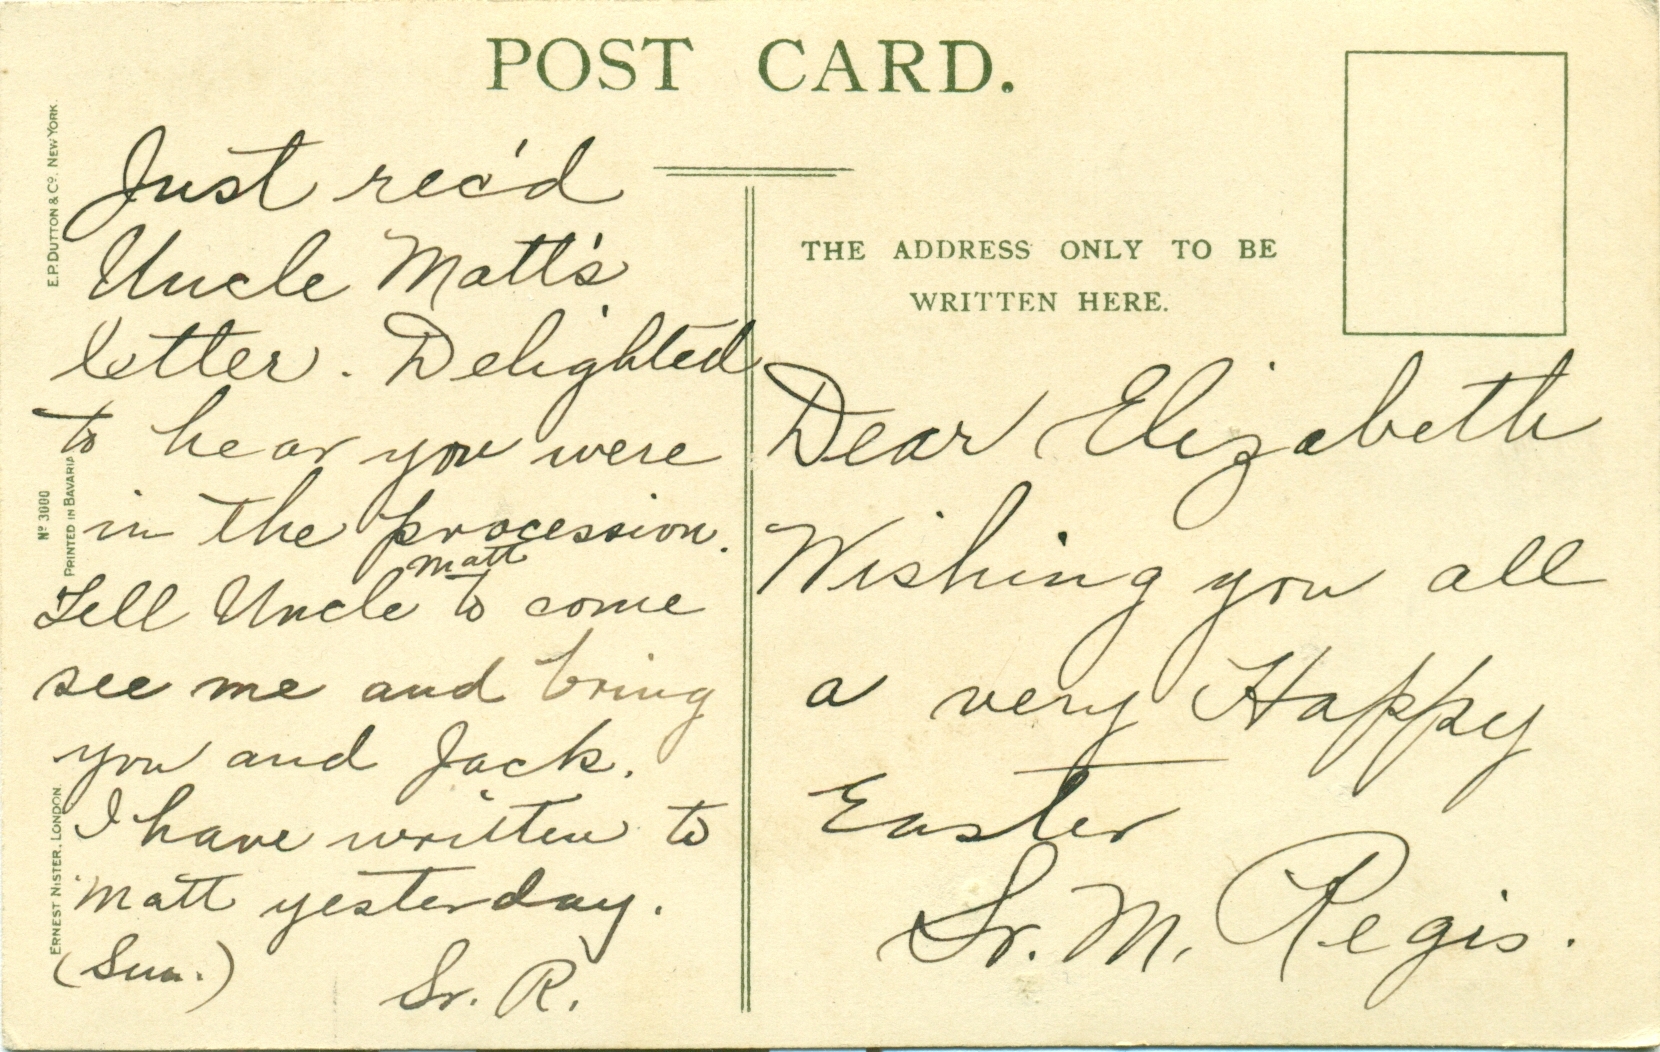 POST CARD.
E.P. DUTTON & Co. NEW YORK.
Nº 3000
PRINTED IN BAVARIA
ERNEST NISTER, LONDON.
Just rec'd
Uncle Matt's
letter. Delighted
to hear you were
in the procession.
Matt
Tell Uncle to come
see me and bring
you and Jack.
I have written to
Matt yesterday.
(Sun.)
Sr. R.
THE ADDRESS ONLY TO BE
WRITTEN HERE.
Dear Elizabeth
Wishing you all
a very Happy
Easter
Sr. M. Regis.